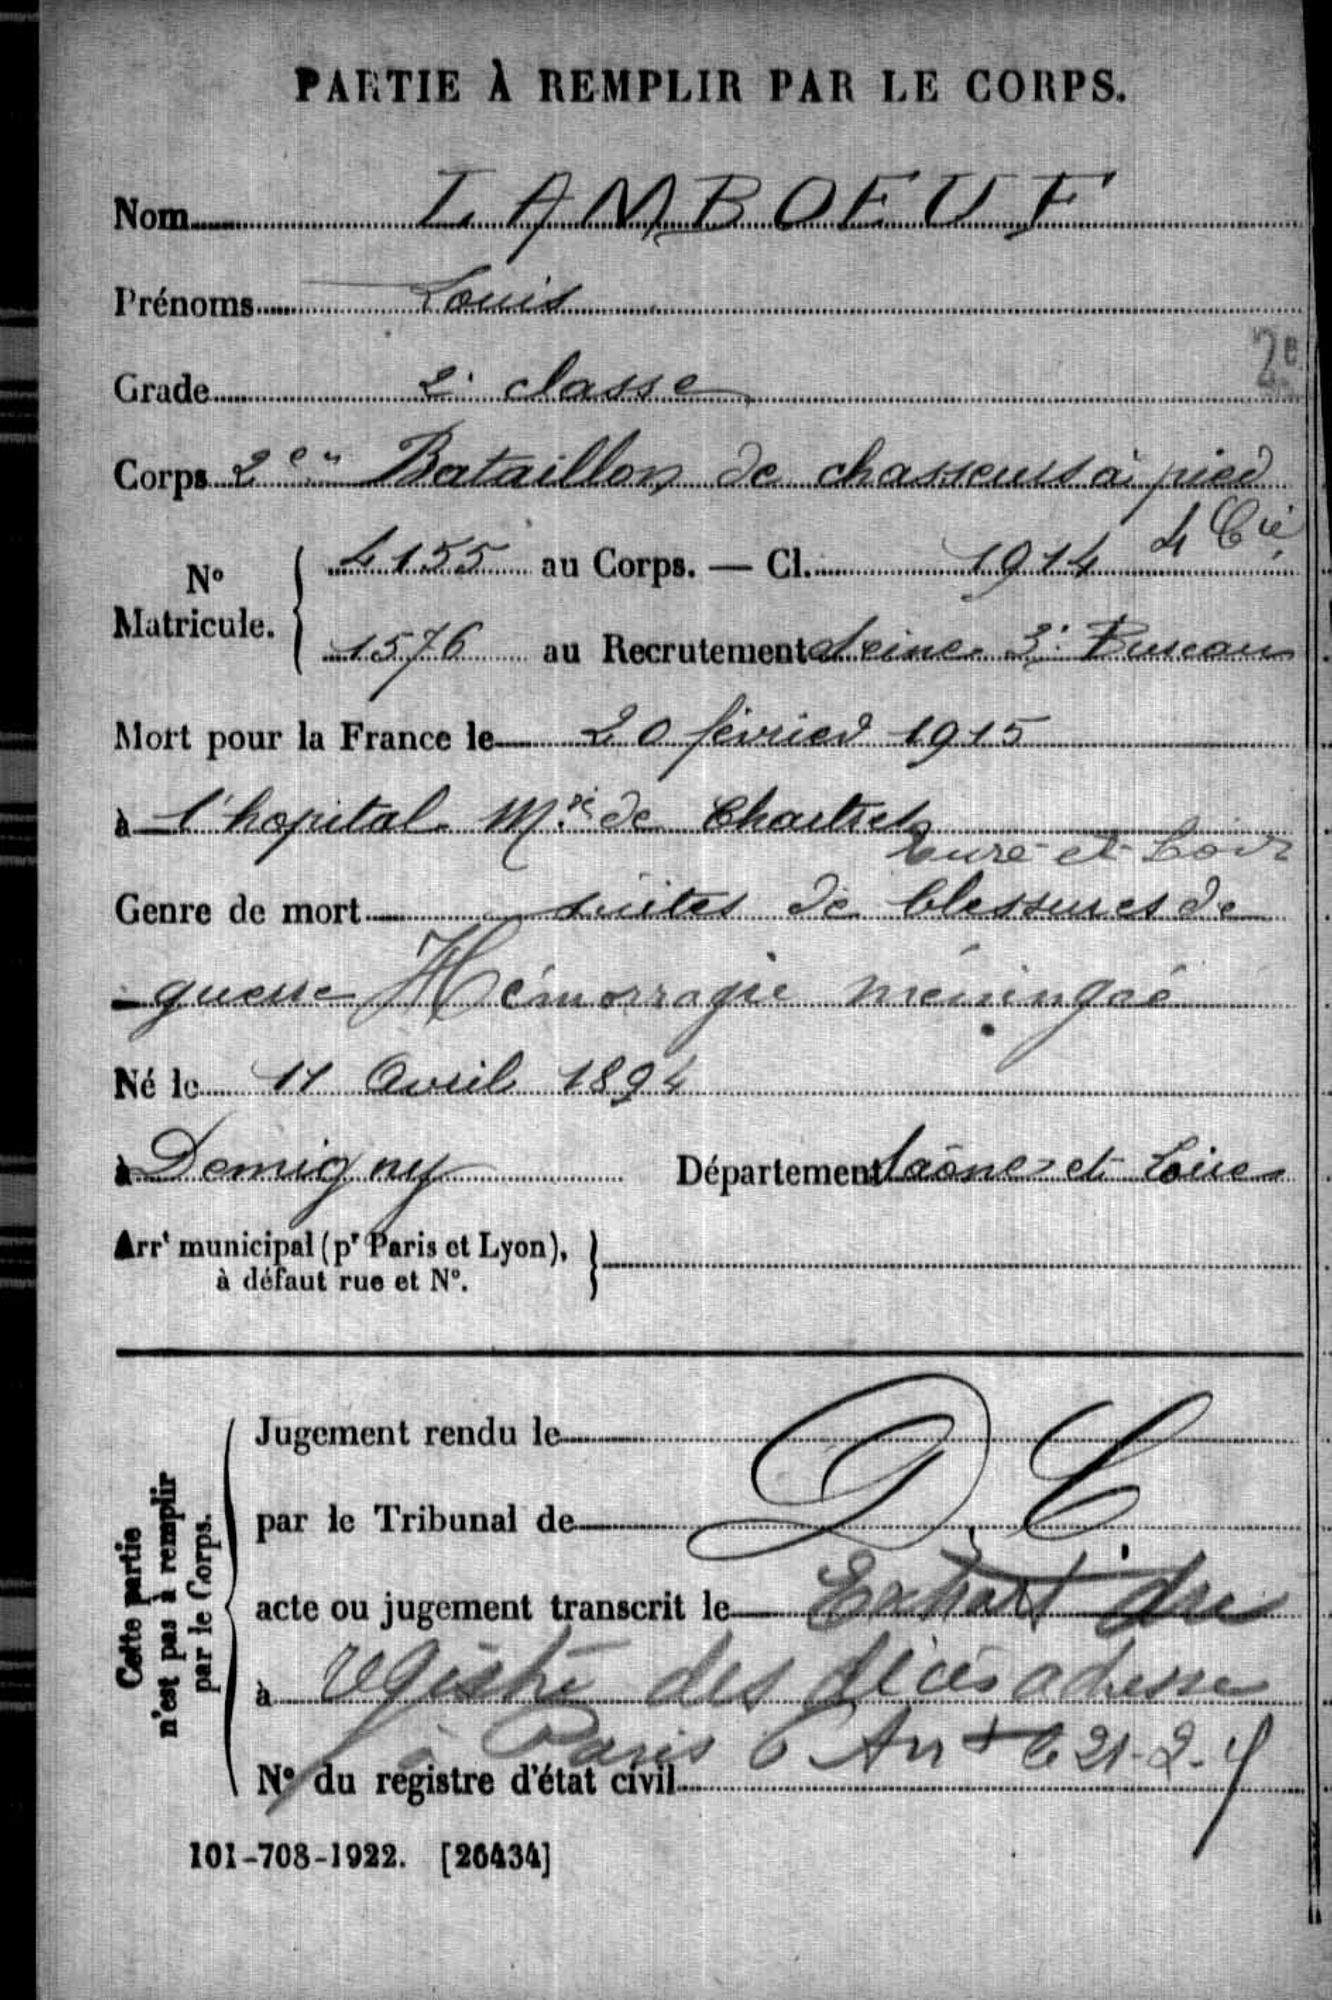 PARTIE À REMPLIR PAR LE CORPS.
Nom LAMBOEUF
Prénoms Louis
2e
Grade 2e classe
Corps 2em Bataillon de chasseurs à pied
4 Cie
N° Matricule. 4155 au Corps. — Cl. 1914
1576 au Recrutement Seine 3e Bureau
Mort pour la France le 20 février 1915
à l'hopital Mre de Chartres
Eure-et-Loir
Genre de mort suites de blessures de
guerre Hémorragie méningée
Né le 11 Avril 1894
à Demigny Département Saône et Loire
Arrt municipal (pr Paris et Lyon),
à défaut rue et N°.
Cette partie
n'est pas à remplir
par le Corps.
Jugement rendu le
D. C.
par le Tribunal de
acte ou jugement transcrit le Extrait du
à registre des décès adressé
à Paris 6 Arr 21-2-
N° du registre d'état civil
101-708-1922. [26434]